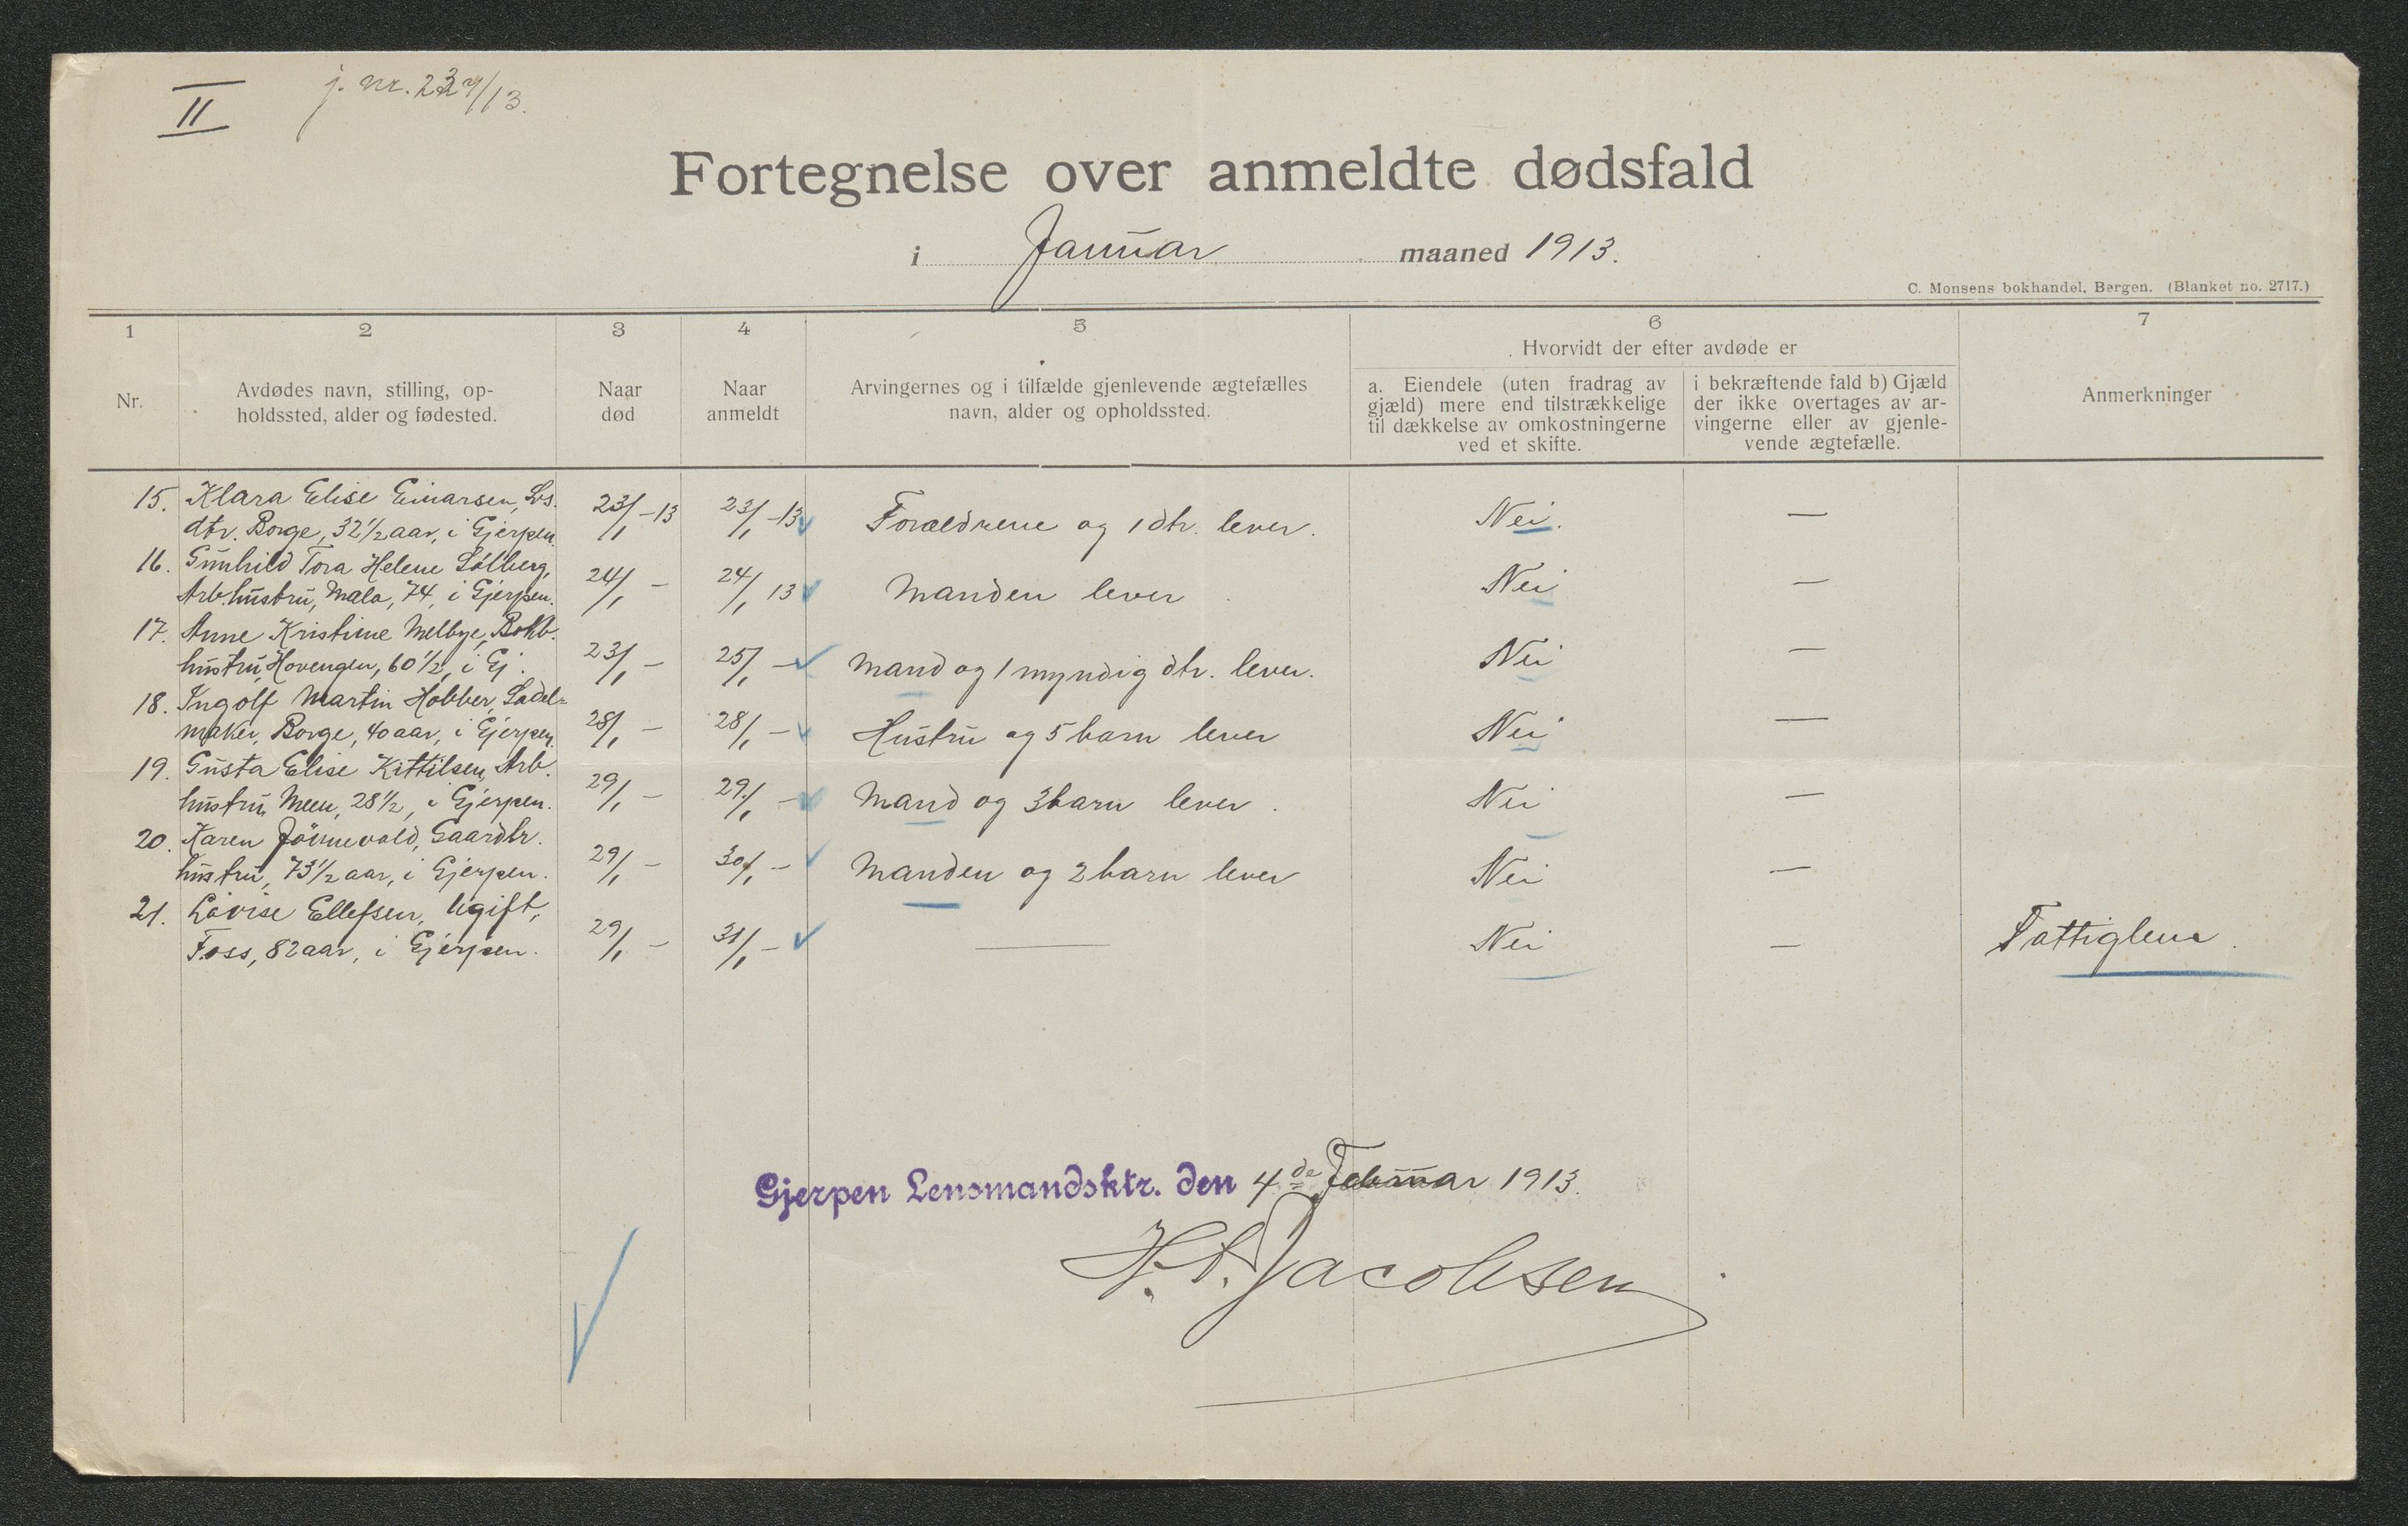 II
j. nr. 229/13.
Fortegnelse over anmeldte dødsfald
i Januar maaned 1913.
C. Monsens bokhandel, Bergen. (Blanket no. 2717.)
1 2 3 4 5 6 7
Hvorvidt der efter avdøde er
Nr.
Avdødes navn, stilling, op-
holdssted, alder og fødested.
Naar
død
Naar
anmeldt
Arvingernes og i tilfælde gjenlevende ægtefælles
navn, alder og opholdssted.
a. Eiendele (uten fradrag av
gjæld) mere end tilstrækkelige
til dækkelse av omkostningerne
ved et skifte.
i bekræftende fald b) Gjæld
der ikke overtages av ar-
vingerne eller av gjenle-
vende ægtefælle.
Anmerkninger
15. Klara Elise Einarsen, Gs.
dtr. Borge, 32 1/2 aar, i Gjerpen. 23/1 -13 23/1 -13 Forældrene og 1 dtr. lever. Nei. —
16. Gunhild Tora Helene Solberg,
Arb.hustru, Mala, 74, i Gjerpen. 24/1 - 24/1 13 Manden lever Nei —
17. Anne Kristine Melbye, Bokb.
hustru, Hovengen, 60 1/2, i Gj. 23/1 - 25/1 - Mand og 1 myndig dtr. lever. Nei —
18. Ingolf Martin Hobber, Sadel-
maker, Borge, 40 aar, i Gjerpen. 28/1 - 28/1 - Hustru og 5 barn lever Nei —
19. Gusta Elise Kittilsen, Arb.
hustru, Meen, 28 1/2, i Gjerpen. 29/1 - 29/1 - Mand og 3 barn lever. Nei —
20. Karen Jönnevald, Gaardbr.
hustru, 73 1/2 aar, i Gjerpen. 29/1 - 30/1 - Manden og 2 barn lever Nei —
21. Lovise Ellefsen, Ugift,
Foss, 82 aar, i Gjerpen. 29/1 - 31/1 - — Nei — Fattiglem.
Gjerpen Lensmandsktr. den 4de Februar 1913.
Jacobsen